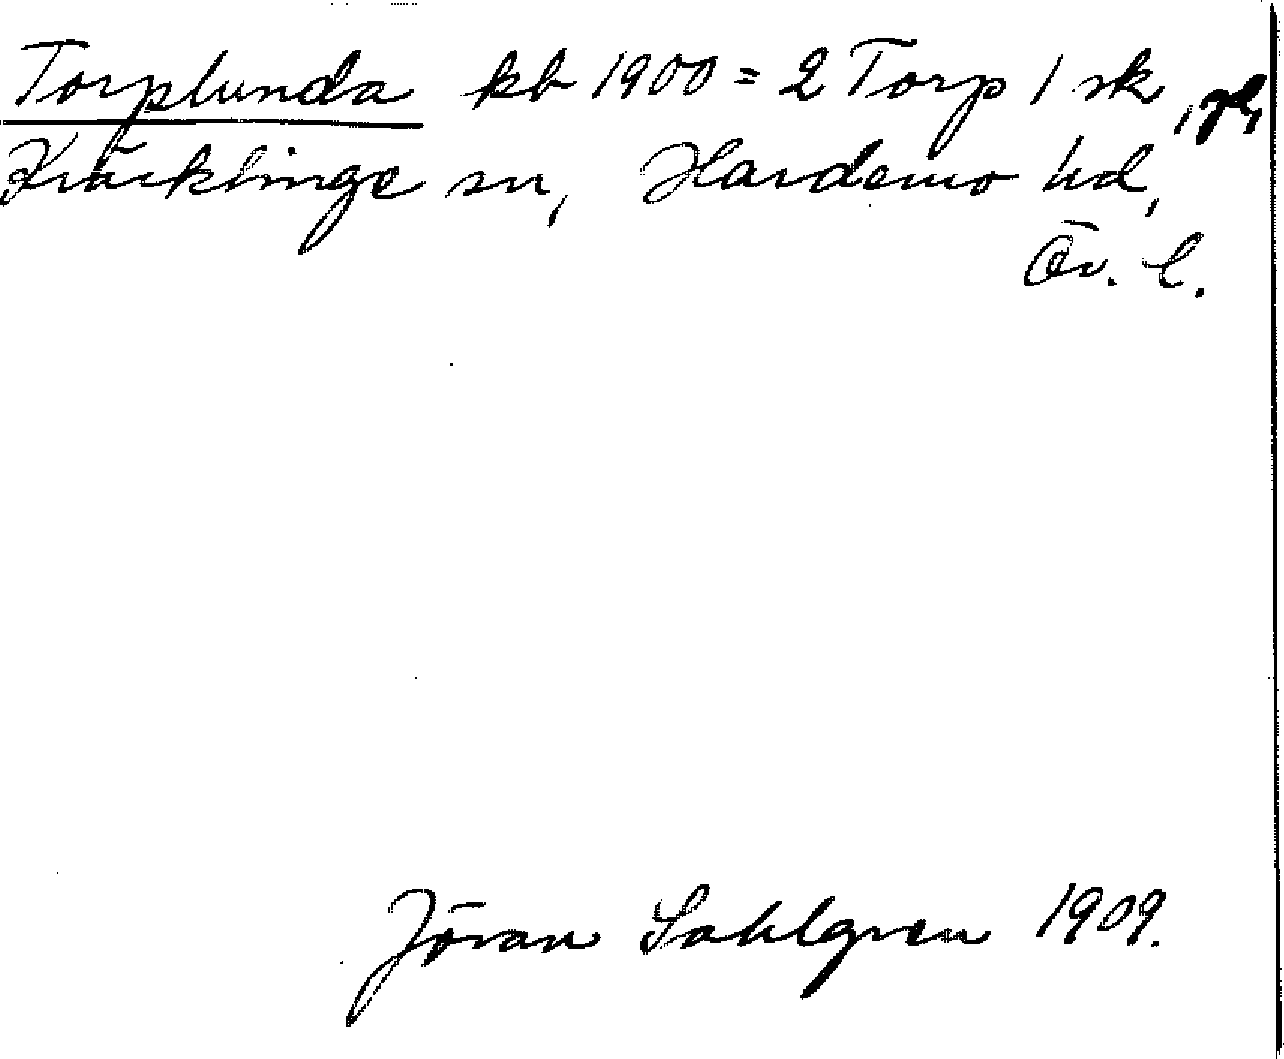 Torplunda kb 1900 = 2 Torp 1 sk, gd,
Kräcklinge sn, Hardemo hd,
Ör. l.
Jöran Sahlgren 1909.